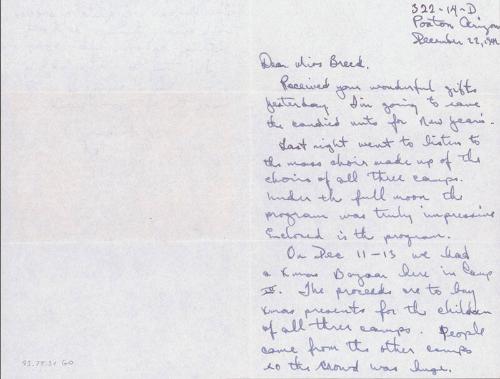 322-14-D
Poston Arizona
December 22, 1942
Dear Miss Breed,
Received your wonderful gifts
yesterday. I'm going to save
the candied nuts for New Years.
Last night went to listen to
the mass choir made up of the
choirs of all three camps.
Under the full moon the
program was truly impressive
Enclosed is the program.
On Dec 11-13 we had
a Xmas Bazaar here in Camp
III. The proceeds are to buy
Xmas presents for the children
of all three camps. People
came from the other camps
so the crowd was huge.
93.75.31 GO